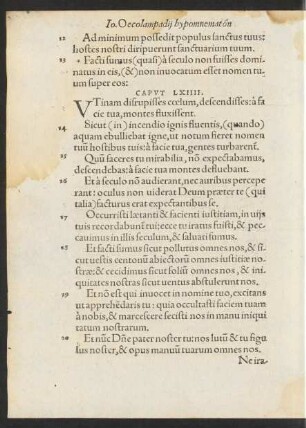 Io. Oecolampadij hypomnematōn
22 Ad minimum possedit populus sanctus tuus:
hostes nostri diripuerunt sanctuarium tuum.
23 Facti sumus (quasi) à seculo non fuisses domi
natus in eis, (&) non inuocatum esset nomen tu
um super eos:
CAPVT LXIIII.
VTinam disrupisses cœlum, descendisses: à fa
cie tua, montes fluxissent.
24 Sicut (in) incendio ignis fluentis, (quando)
aquam ebulliebat igne, ut notum fieret nomen
tuū hostibus tuis: à facie tua, gentes turbarent̃.
25 Quū faceres tu mirabilia, nō expectabamus,
descendebas: à facie tua montes defluebant.
26 Et à seculo nō audierant, nec auribus percepe
rant: oculus non uiderat Deum præter te (qui
talia) facturus erat expectantibus se.
27 Occurristi lætanti & facienti iustitiam, in uijs
tuis recordabunt̃ tui: ecce tu iratus fuisti, & pec
cauimus in illis seculum, & saluati sumus.
28 Et facti sumus sicut pollutus omnes nos, & si
cut uestis centonū abiectorū omnes iustitiæ no
stræ: & cecidimus sicut foliū omnes nos, & ini
quitates nostras sicut uentus abstulerunt nos.
29 Et nō est qui inuocet in nomine tuo, excitans
ut apprehēdaris tu: quia occultasti faciem tuam
à nobis, & marcescere fecisti nos in manu iniqui
tatum nostrarum.
30 Et nūc Dñe pater noster tu: nos lutū & tu figu
lus noster, & opus manuū tuarum omnes nos.
Ne ira-